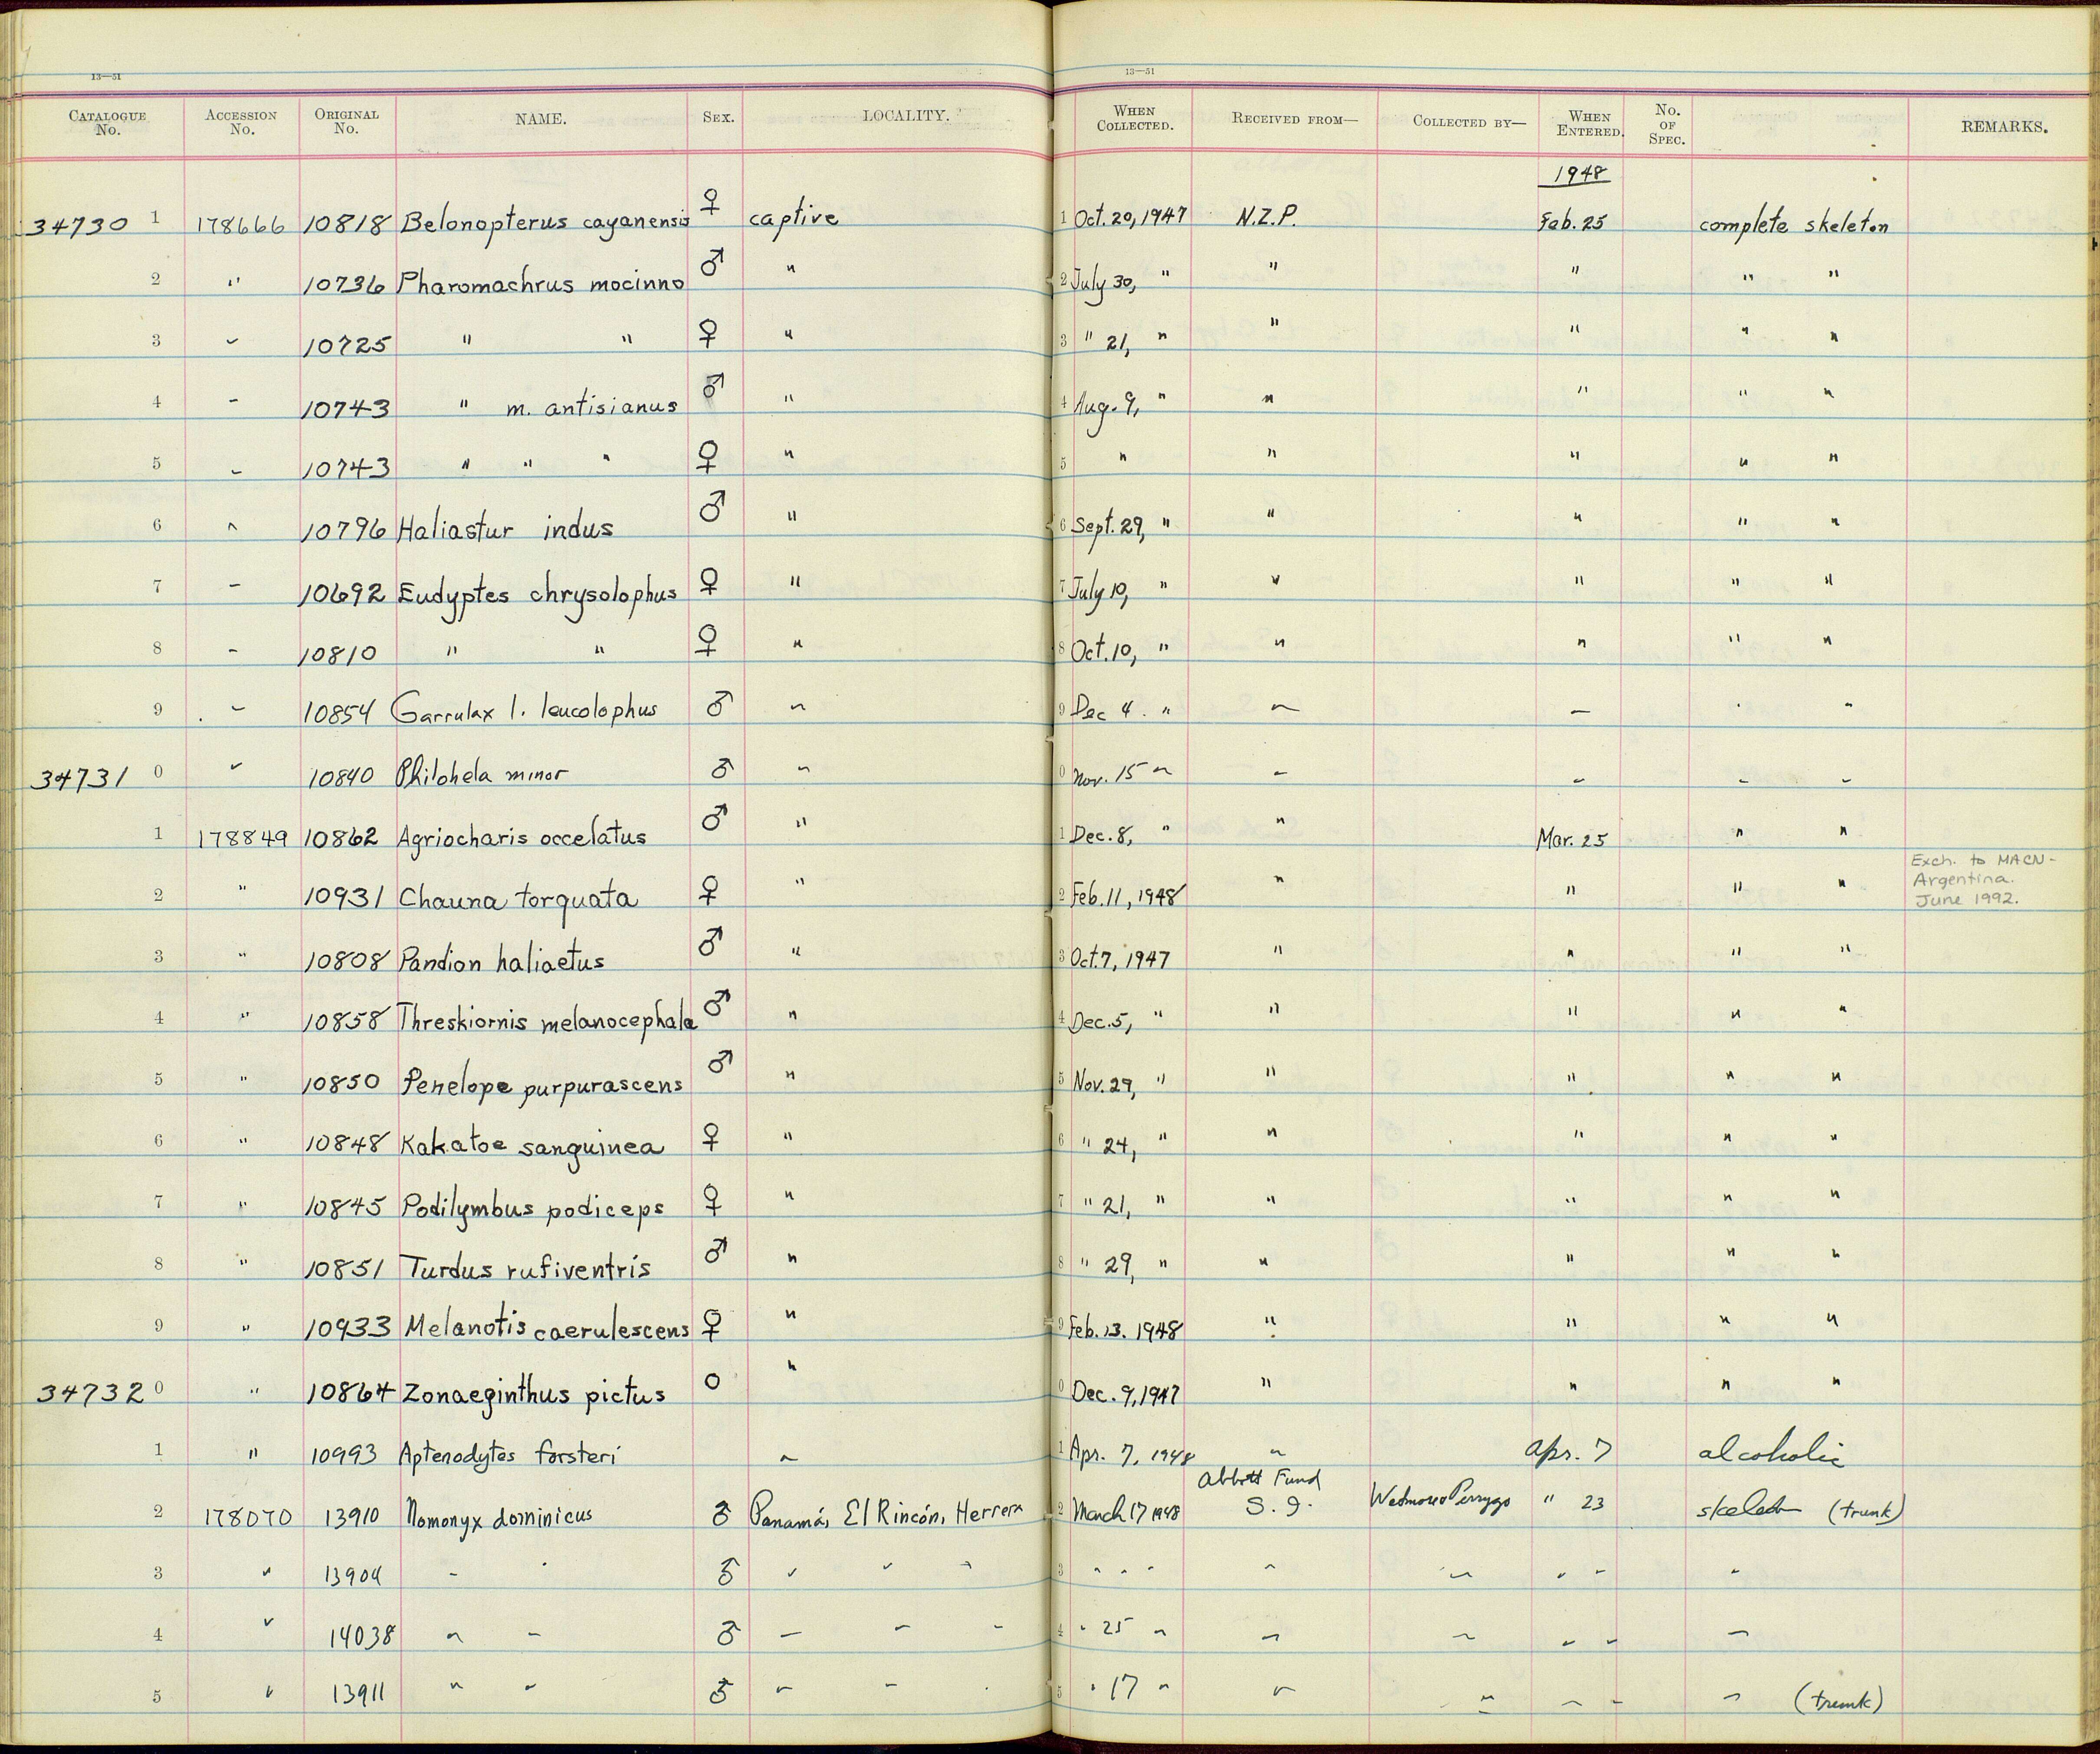 13—51
13—51
CATALOGUE No. ACCESSION No. ORIGINAL No. NAME. SEX. LOCALITY. WHEN COLLECTED. RECEIVED FROM— COLLECTED BY— WHEN ENTERED. No. OF SPEC. REMARKS.
1948
34730 1 178666 10818 Belonopterus cayanensis ♀ captive 1 Oct. 20, 1947 N.Z.P. Feb. 25 complete skeleton
2 " 10736 Pharomachrus mocinno ♂ " 2 July 30, " " " " "
3 " 10725 " " ♀ " 3 " 21, " " " " "
4 " 10743 " m. antisianus ♂ " 4 Aug. 9, " " " " "
5 " 10743 " " " ♀ " 5 " " " " "
6 " 10796 Haliastur indus ♂ " 6 Sept. 29, " " " " "
7 " 10692 Eudyptes chrysolophus ♀ " 7 July 10, " " " " "
8 " 10810 " " ♀ " 8 Oct. 10, " " " " "
9 " 10854 Garrulax l. leucolophus ♂ " 9 Dec 4. " " " " "
34731 0 " 10840 Philohela minor ♂ " 0 Nov. 15 " " " " "
1 178849 10862 Agriocharis occelatus ♂ " 1 Dec. 8, " " Mar. 25 " "
2 " 10931 Chauna torquata ♀ " 2 Feb. 11, 1948 " " " " Exch. to MACN-
Argentina.
June 1992.
3 " 10808 Pandion haliaetus ♂ " 3 Oct. 7, 1947 " " " "
4 " 10858 Threskiornis melanocephala ♂ " 4 Dec. 5, " " " " "
5 " 10850 Penelope purpurascens ♂ " 5 Nov. 29, " " " " "
6 " 10848 Kakatoe sanguinea ♀ " 6 " 24, " " " " "
7 " 10845 Podilymbus podiceps ♀ " 7 " 21, " " " " "
8 " 10851 Turdus rufiventris ♂ " 8 " 29, " " " " "
9 " 10933 Melanotis caerulescens ♀ " 9 Feb. 13. 1948 " " " "
34732 0 " 10864 Zonaeginthus pictus o " 0 Dec. 9, 1947 " " " "
1 " 10993 Aptenodytes forsteri " 1 Apr. 7, 1948 " Apr. 7 alcoholic
Abbott Fund
2 178070 13910 Nomonyx dominicus ♂ Panamá, El Rincón, Herrera 2 March 17 1948 S. I. Wetmore Perrygo " 23 skeleton (trunk)
3 " 13904 " " ♂ " " " 3 " " " " " " " "
4 " 14038 " " ♂ " " " 4 " 25 " " " " " "
5 " 13911 " " ♂ " " " 5 " 17 " " " " " " (trunk)